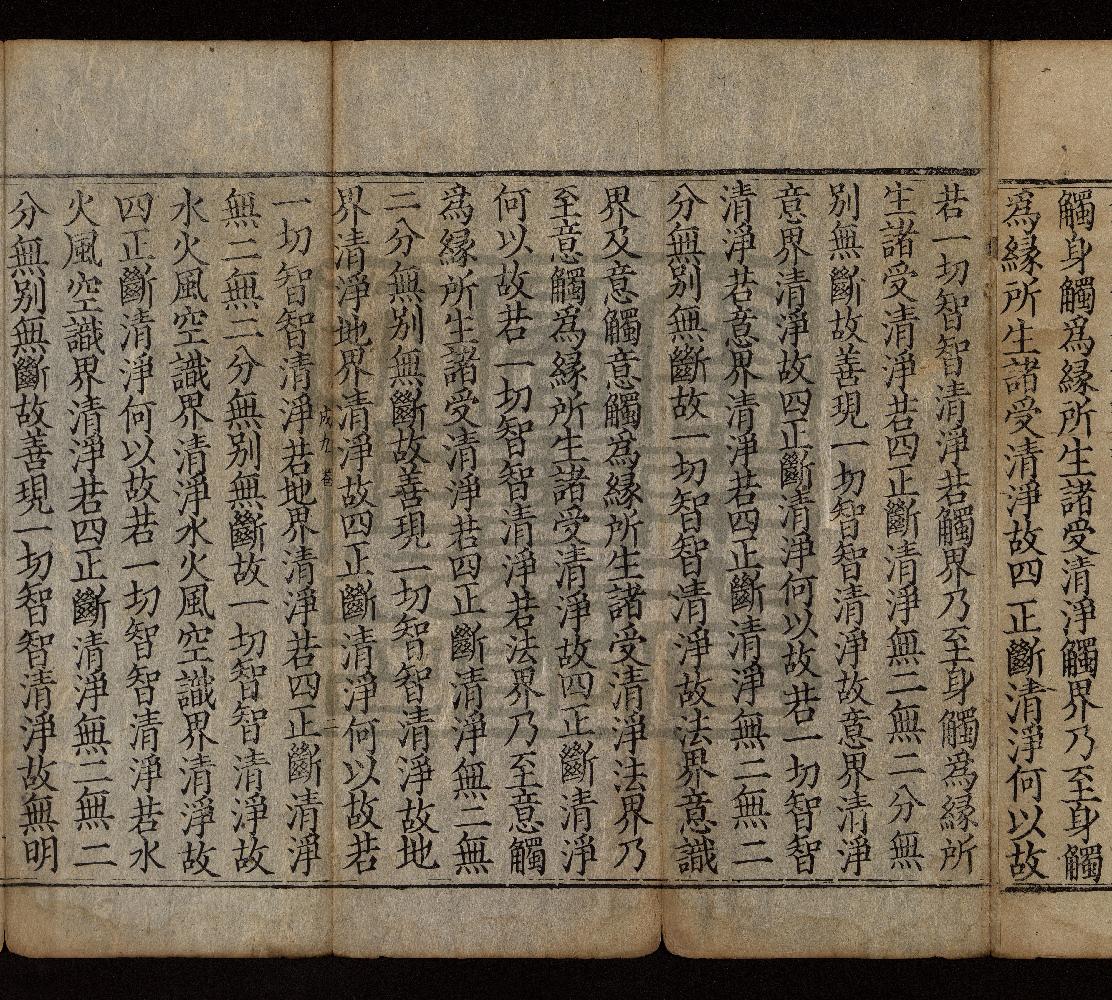 觸身觸爲緣所生諸受清淨觸界乃至身觸
爲緣所生諸受清淨故四正斷清淨何以故
若一切智智清淨若觸界乃至身觸爲緣所
生諸受清淨若四正斷清淨無二無二分無
別無斷故善現一切智智清淨故意界清淨
意界清淨故四正斷清淨何以故若一切智智
清淨若意界清淨若四正斷清淨無二無二
分無別無斷故一切智智清淨故法界意識
界及意觸意觸爲緣所生諸受清淨法界乃
至意觸爲緣所生諸受清淨故四正斷清淨
何以故若一切智智清淨若法界乃至意觸
爲緣所生諸受清淨若四正斷清淨無二無
二分無別無斷故善現一切智智清淨故地
界清淨地界清淨故四正斷清淨何以故若
一切智智清淨若地界清淨若四正斷清淨
無二無二分無別無斷故一切智智清淨故
水火風空識界清淨水火風空識界清淨故
四正斷清淨何以故若一切智智清淨若水
火風空識界清淨若四正斷清淨無二無二
分無別無斷故善現一切智智清淨故無明